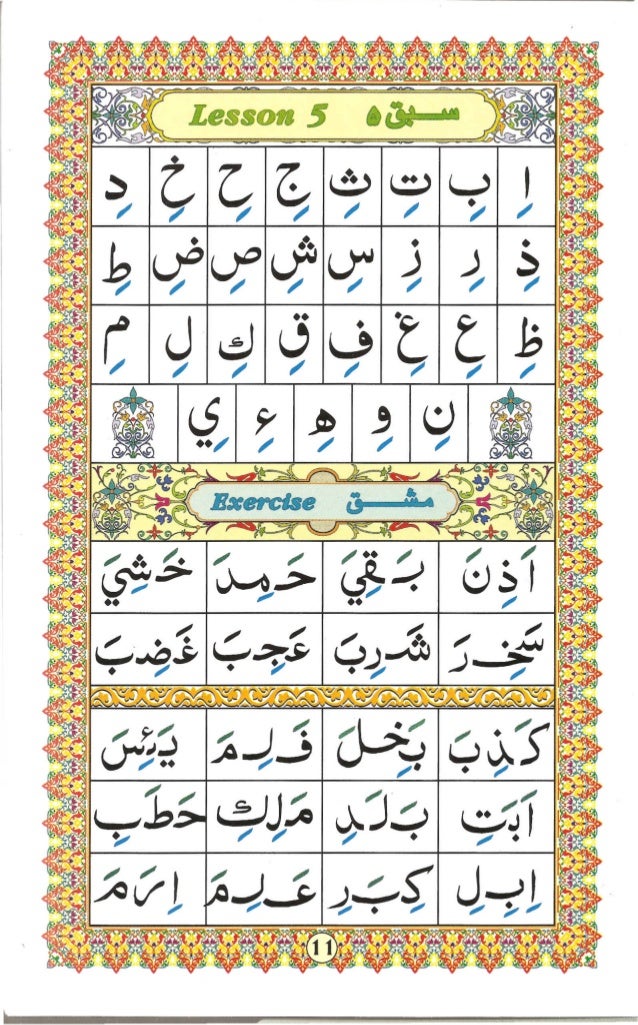 Lesson 5 سبق ۵
اِ بِ تِ ثِ جِ حِ خِ دِ
ذِ رِ زِ سِ شِ صِ ضِ طِ
ظِ عِ غِ فِ قِ كِ لِ مِ
نِ وِ هِ ءِ يِ
Exercise مشق
اَذِنَ بَقِيَ حَمِدَ خَشِيَ
سَخِرَ شَرِبَ عَجِبَ غَضِبَ
كَذِبَ بَخِلَ فَلِمَ يَئِسَ
اَبَتِ بَلَدِ مَلِكِ حَطَبِ
اِبِلِ كِبَرِ عَلِمَ اِرَمَ
11